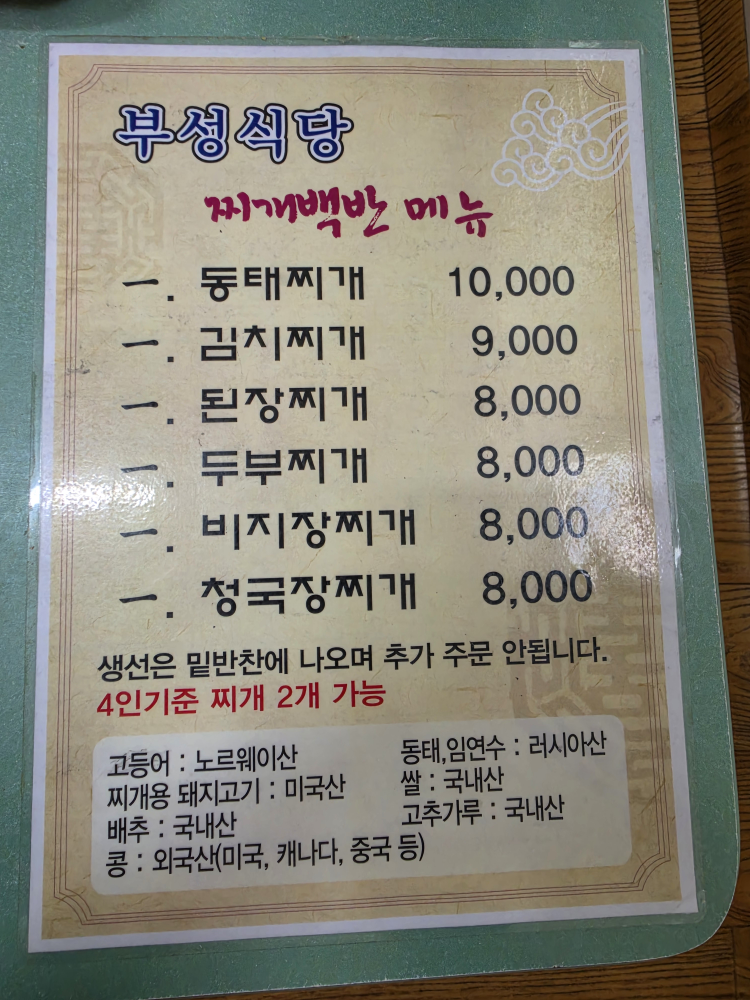 부성식당
찌개백반 메뉴
一. 동태찌개 10,000
一. 김치찌개 9,000
一. 된장찌개 8,000
一. 두부찌개 8,000
一. 비지장찌개 8,000
一. 청국장찌개 8,000
생선은 밑반찬에 나오며 추가 주문 안됩니다.
4인기준 찌개 2개 가능
고등어 : 노르웨이산 동태,임연수 : 러시아산
찌개용 돼지고기 : 미국산 쌀 : 국내산
배추 : 국내산 고추가루 : 국내산
콩 : 외국산(미국, 캐나다, 중국 등)